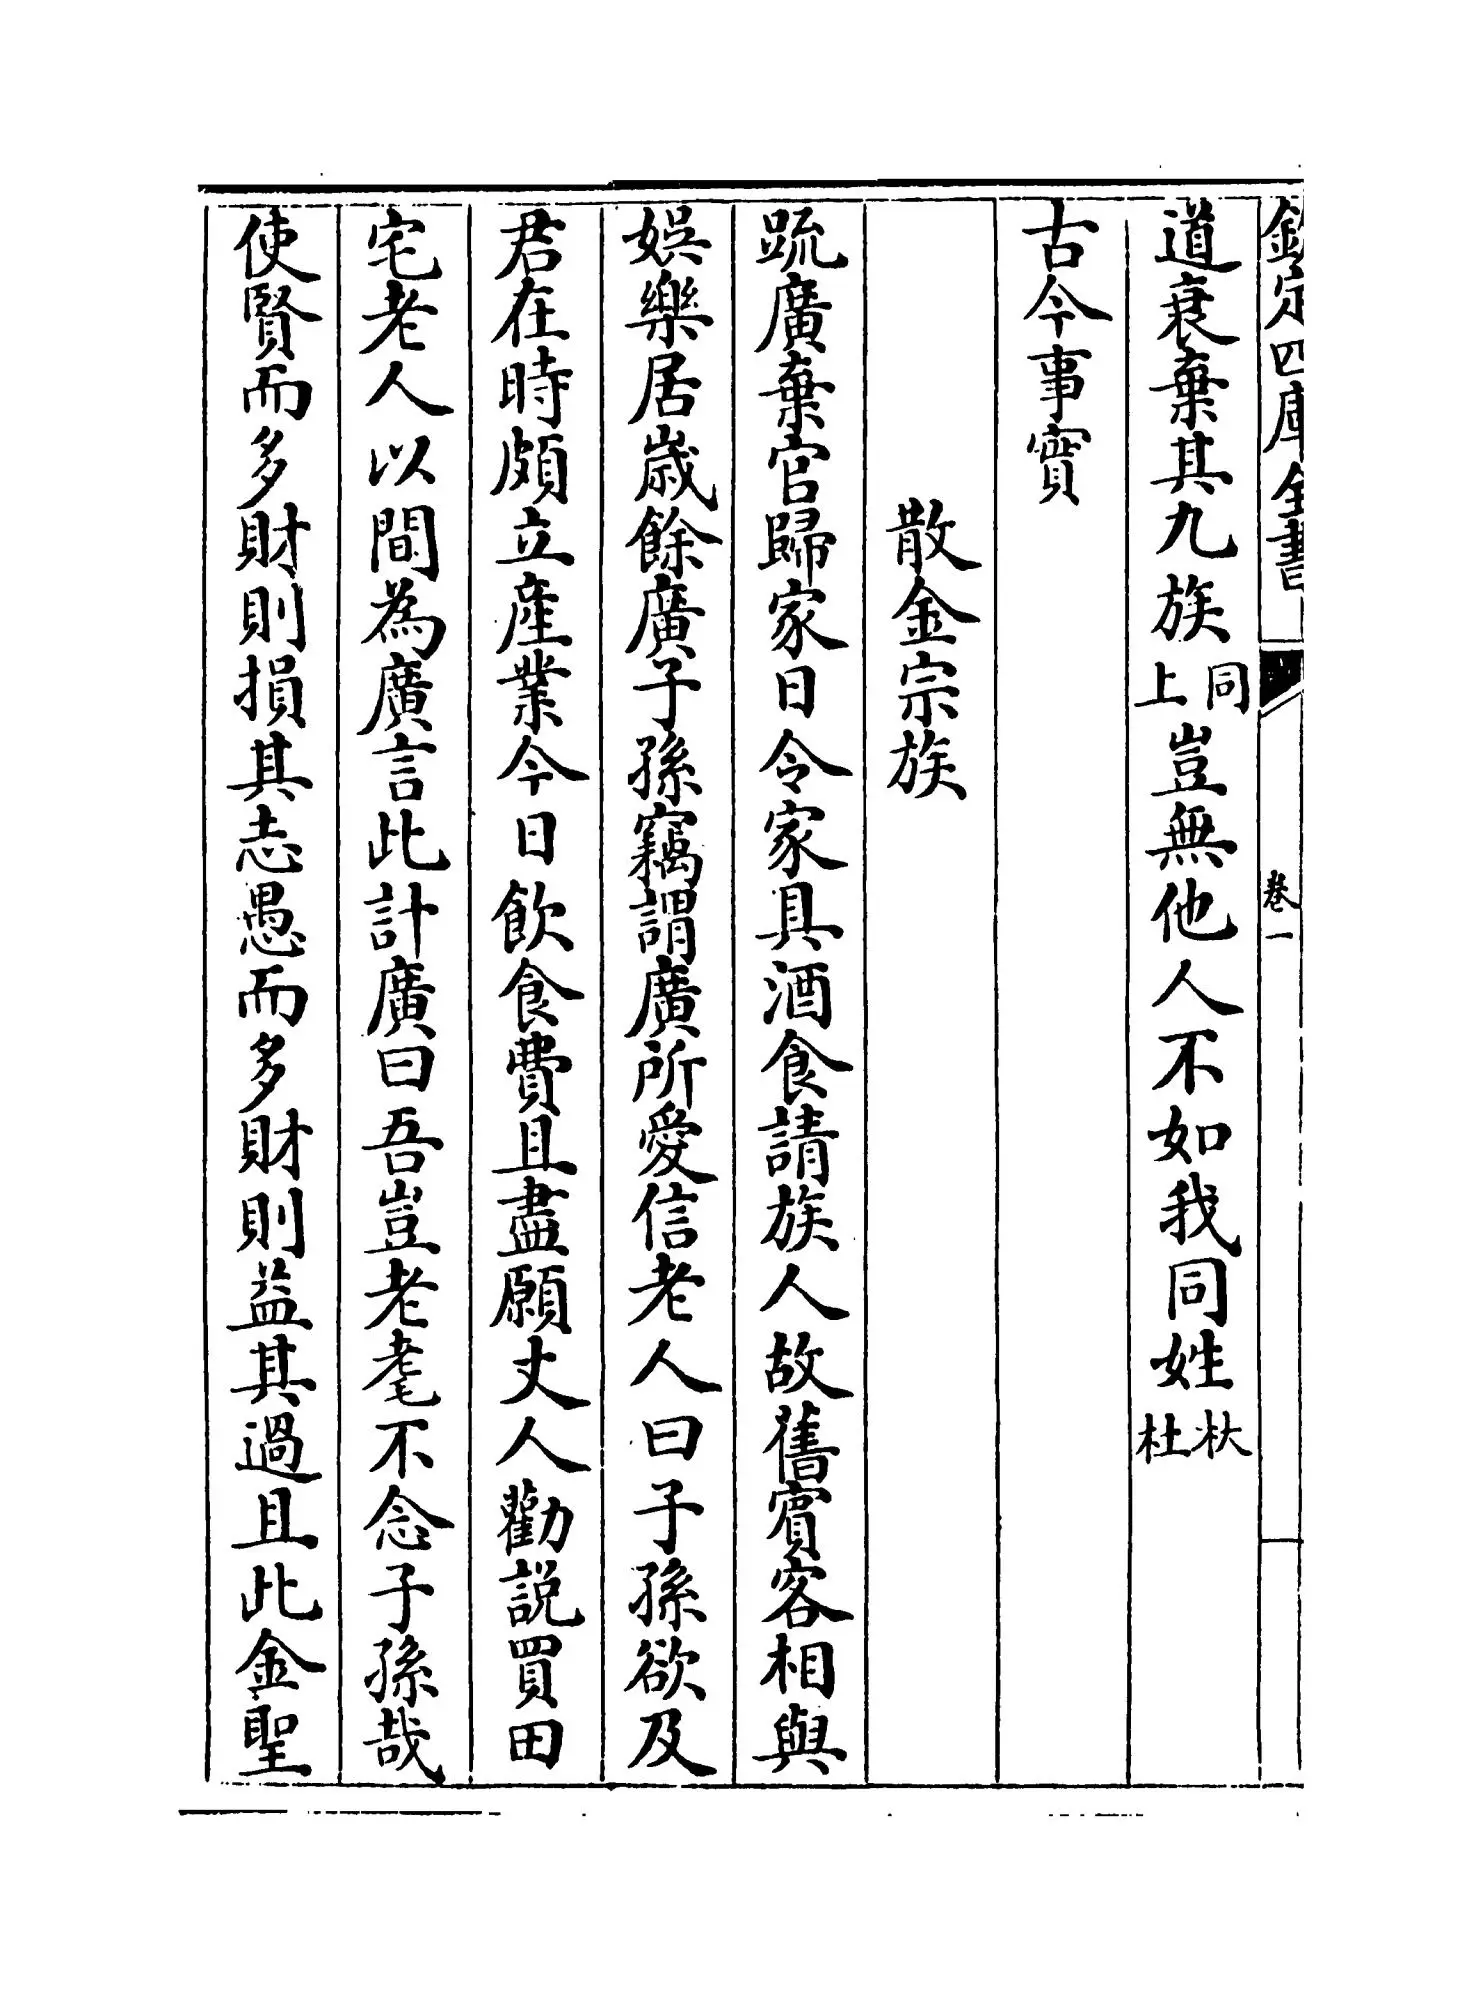 欽定四庫全書
卷一
道衰棄其九族同上豈無他人不如我同姓杕杜
古今事實
散金宗族
疏廣棄官歸家日令家具酒食請族人故舊賓客相與
娛樂居歳餘廣子孫竊謂廣所愛信老人曰子孫欲及
君在時頗立產業今日飲食費且盡願丈人勸説買田
宅老人以間為廣言此計廣曰吾豈老耄不念子孫哉
使賢而多財則損其志愚而多財則益其過且此金聖